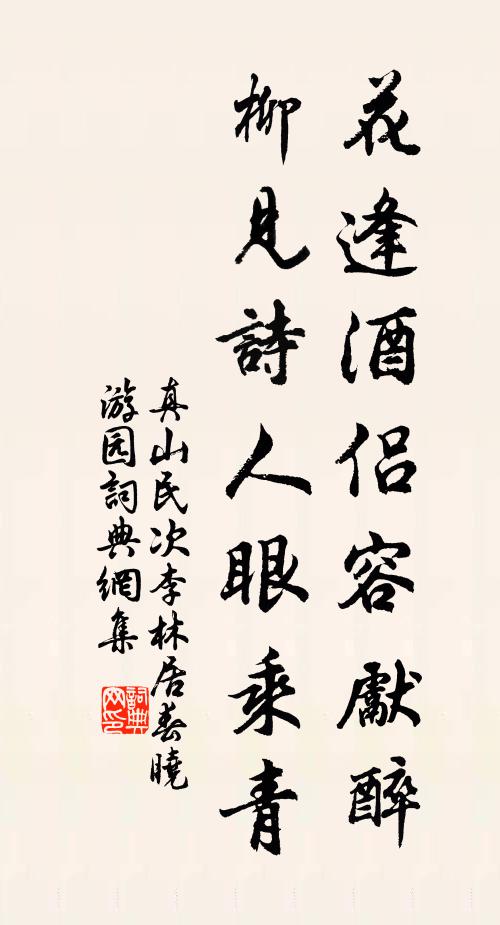 花逢酒侣容獻醉
柳見詩人眼乘青
真山民次李林居春曉
游园詞典網集
詞典网印